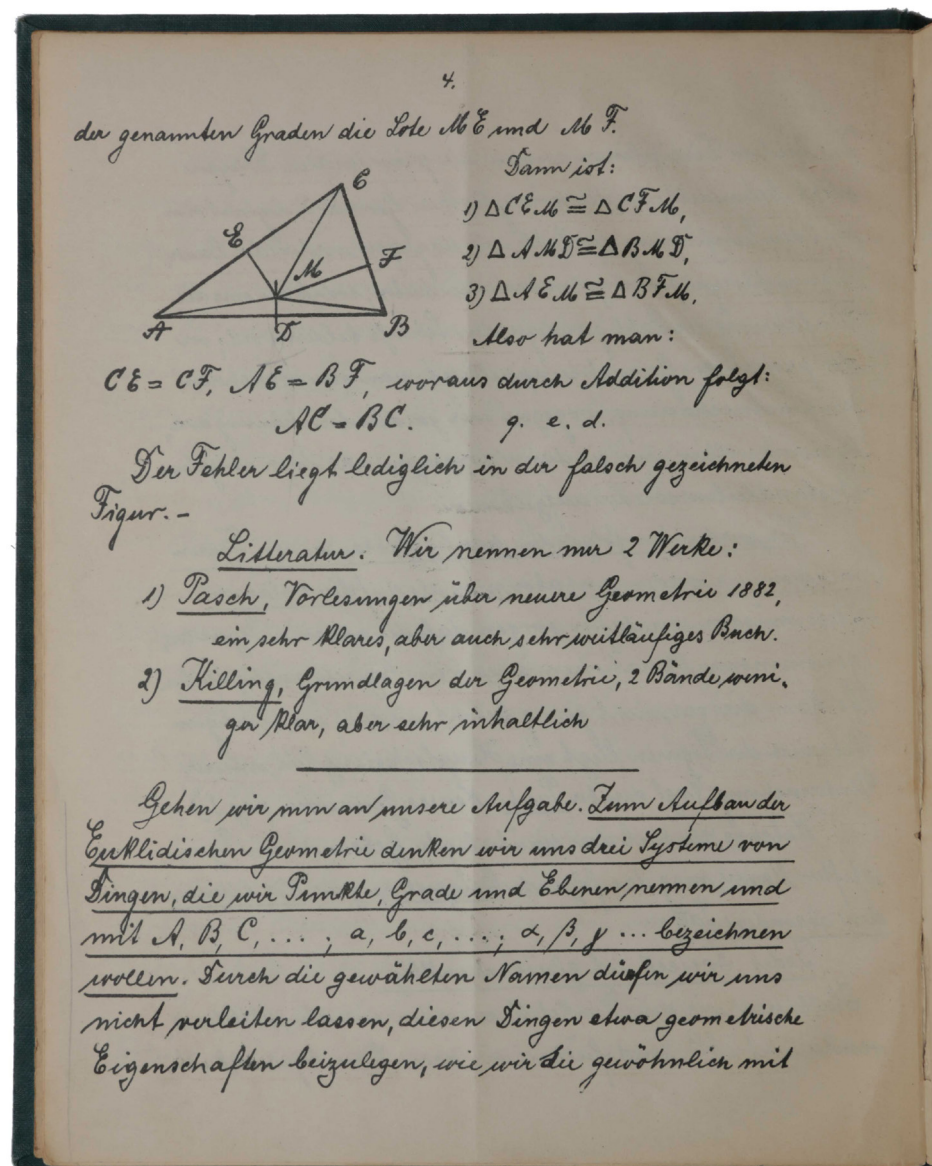 4.
der genannten Graden die Lote ME und MF.
Dann ist:
C
1) △CEM ≅ △CFM,
E
2) △AMD ≅ △BMD,
F
M
3) △AEM ≅ △BFM,
A
D
B
Also hat man:
CE = CF, AE = BF, woraus durch Addition folgt:
AC = BC. q. e. d.
Der Fehler liegt lediglich in der falsch gezeichneten
Figur. –
Litteratur: Wir nennen nur 2 Werke:
1) Pasch, Vorlesungen über neuere Geometrie 1882,
ein sehr klares, aber auch sehr weitläufiges Buch.
2) Killing, Grundlagen der Geometrie, 2 Bände weni-
ger klar, aber sehr inhaltlich
Gehen wir nun an unsere Aufgabe. Zum Aufbau der
Euklidischen Geometrie denken wir uns drei Systeme von
Dingen, die wir Punkte, Grade und Ebenen nennen und
mit A, B, C, ... ; a, b, c, ....; α, β, γ ... bezeichnen
wollen. Durch die gewählten Namen dürfen wir uns
nicht verleiten lassen, diesen Dingen etwa geometrische
Eigenschaften beizulegen, wie wir die gewöhnlich mit